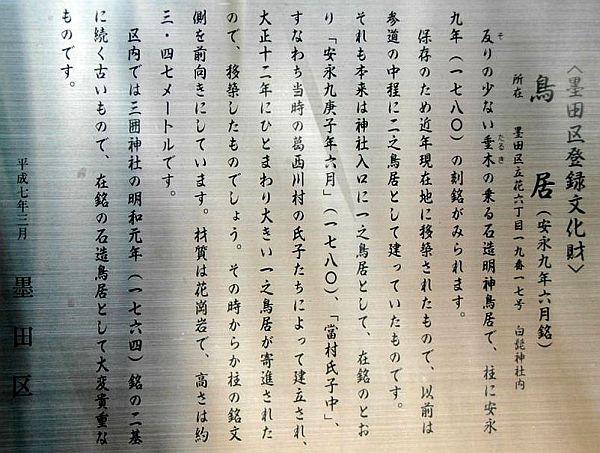 〈墨田区登録文化財〉
鳥居(安永九年六月銘)
所在 墨田区立花六丁目一九番一七号 白髭神社内
反りの少ない垂木の乗る石造明神鳥居で、柱に安永
九年(一七八〇)の刻銘がみられます。
保存のため近年現在地に移築されたもので、以前は
参道の中程に二之鳥居として建っていたものです。
それも本来は神社入口に一之鳥居として、在銘のとお
り「安永九庚子年六月」(一七八〇)、「當村氏子中」、
すなわち当時の葛西川村の氏子たちによって建立され、
大正十二年にひとまわり大きい一之鳥居が寄進された
ので、移築したものでしょう。その時からか柱の銘文
側を前向きにしています。材質は花崗岩で、高さは約
三・四七メートルです。
区内では三囲神社の明和元年(一七六四)銘の二基
に続く古いもので、在銘の石造鳥居として大変貴重な
ものです。
平成七年三月
墨田区